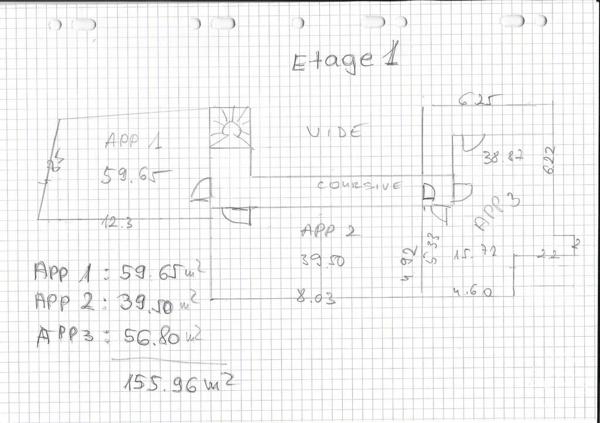 Etage 1
6.25
APP 1
VIDE
38.87
6.22
59.65
COURSIVE
APP 3
12.3
APP 2
4.92
5.33
15.72
2.2
39.50
8.03
4.60
APP 1 : 59.65 m²
APP 2 : 39.50 m²
APP 3 : 56.80 m²
155.96 m²